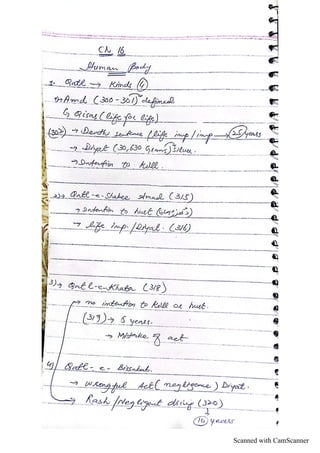 Ch 16
Human Body
1. Qatl → Kinds (4)
1) Amd (300-301) defined
↳ Qisas (life for life)
(302) → Death sentence / life imp / imp → 25 years
→ Diyat (30,630 Grams) silver.
→ Intention to kill.
2) → Qatl-e-Shabee Amad (315)
→ Intention to hurt
→ life imp. / Diyat. (316)
3) → Qatl-e-Khata (318)
→ no intention to kill or hurt.
(319) → 5 years.
→ Mistake of act
4) Qatl-e-Bissabab.
→ wrongful Act (negligence) Diyat.
→ Rash / Negligent driving (320)
↓
10 years
Scanned with CamScanner